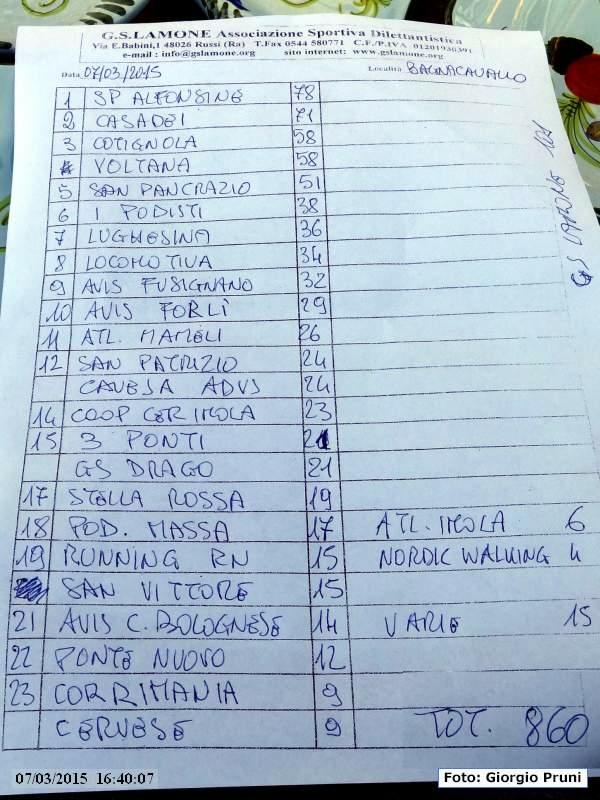 G.S.LAMONE Associazione Sportiva Dilettantistica
Via E.Babini,1 48026 Russi (Ra) T.Fax 0544 580771 C.F./P.IVA 01201936391
e-mail : info@gslamone.org sito internet: www.gslamone.org
Data 07/03/2015 Località BAGNACAVALLO
1 SP ALFONSINE 78
2 CASADEI 71
3 COTIGNOLA 58
VOLTANA 58
5 SAN PANCRAZIO 51
6 I PODISTI 38
7 LUGHESINA 36
8 LOCOMOTIVA 34
9 AVIS FUSIGNANO 32
10 AVIS FORLÌ 29
11 ATL. MAMELI 26
12 SAN PATRIZIO 24
CAVEJA ADVS 24
14 COOP CER IMOLA 23
15 3 PONTI 21
GS DRAGO 21
17 STELLA ROSSA 19
18 POD. MASSA 17 ATL. IMOLA 6
19 RUNNING RN 15 NORDIC WALKING 4
SAN VITTORE 15
21 AVIS C. BOLOGNESE 14 VARIE 15
22 PONTE NUOVO 12
23 CORRIMANIA 9
CERVESE 9 TOT. 860
GS LAMONE 101
07/03/2015 16:40:07
Foto: Giorgio Pruni